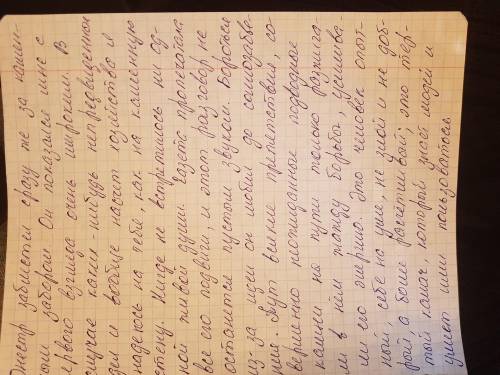 Днестр забьется сразу же за камен-
ным забором. Он показался мне с
первого взгляда очень широким. В
случае каких-нибудь непредвиденнос
дел и вообще насчет хозяйства я
надеюсь на тебя, как на каменную
стену. Нигде не встретилось ни од-
ной живой души. Газета пролежала.
все его подвиги, и этот разговор не
останется пустым звуком. Бороться
из-за идеи он любил до самозабве-
ния. Тут всякие препятствия, со-
вершенно неожиданное подводное
камни на пути только разжига-
ли в нём жажду борьбы, усилива-
ли его энергию. Это человек опыт-
ный, себе на уме, не злой и не доб-
рый, а более расчетливый; это тер-
тый калач, который знает людей и
умеет ими пользоваться